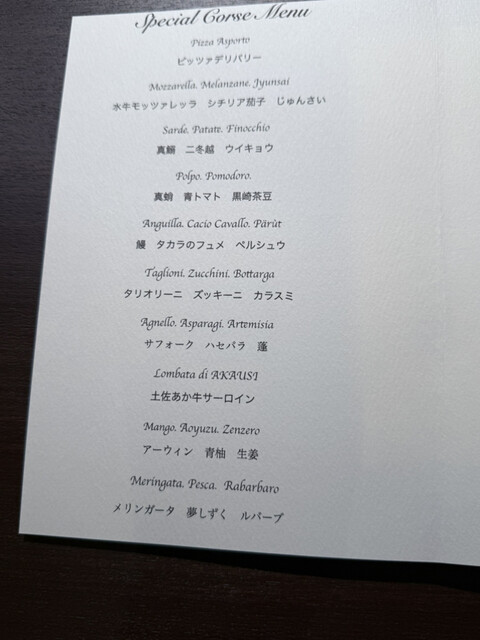 Special Corse Menu
Pizza Asporto
ピッツァデリバリー
Mozzarella. Melanzane. Jyunsai
水牛モッツァレッラ シチリア茄子 じゅんさい
Sarde. Patate. Finocchio
真鰯 二冬越 ウイキョウ
Polpo. Pomodoro.
真蛸 青トマト 黒崎茶豆
Anguilla. Cacio Cavallo. Pärùt
鰻 タカラのフュメ ペルシュウ
Taglioni. Zucchini. Bottarga
タリオリーニ ズッキーニ カラスミ
Agnello. Asparagi. Artemisia
サフォーク ハセパラ 蓬
Lombata di AKAUSI
土佐あか牛サーロイン
Mango. Aoyuzu. Zenzero
アーウィン 青柚 生姜
Meringata. Pesca. Rabarbaro
メリンガータ 夢しずく ルバーブ